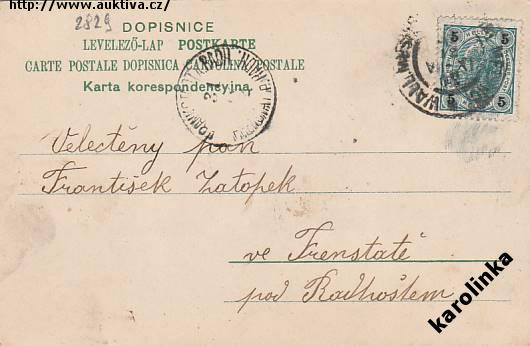 http://www.auktiva.cz/
2829
DOPISNICE
LEVELEZŐ-LAP POSTKARTE
CARTE POSTALE DOPISNICA CARTOLINA POSTALE
Karta korespondencyjna.
5 5
5 5
Velectěny pan
František Zatopek
ve Frenstatě
pod Radhoštem
karolinka